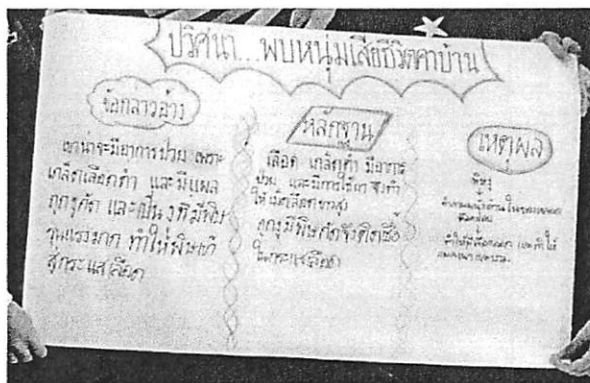 ปริศนา...พบหนุ่มเสียชีวิตคาบ้าน
ข้อกล่าวอ้าง
เขาน่าจะมีอาการป่วย เพราะ
เกล็ดเลือดต่ำ และมีแผล
ถูกงูกัด และเป็นงูที่มีพิษ
รุนแรงมาก ทำให้พิษเข้า
สู่กระแสเลือด
หลักฐาน
เลือด เกล็ดต่ำ มีอาการ
ป่วย และมีการใช้ยา จึงทำ
ให้เม็ดเลือดขาวสูง
ถูกงูมีพิษกัดจึงติดเชื้อ
ในกระแสเลือด
เหตุผล
พิษงู